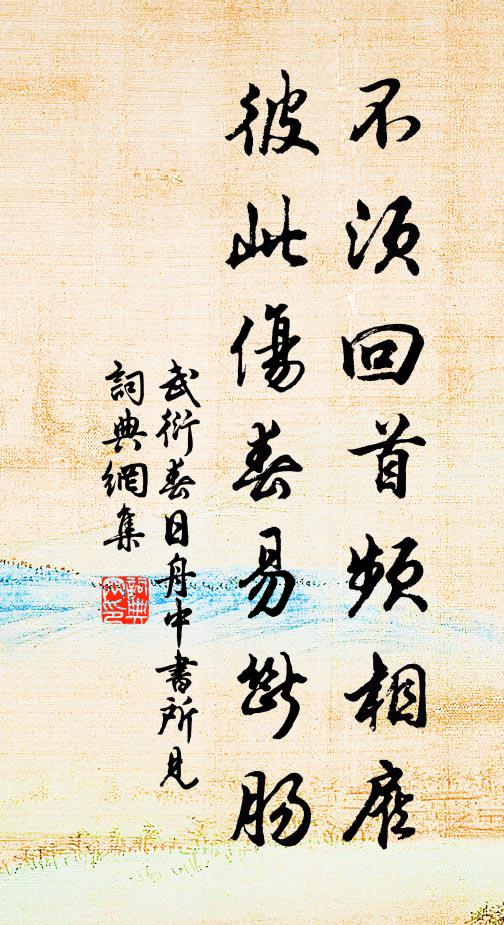 不須回首頻相
彼此傷春易斷腸
武衍春日舟中書所見
詞典網集